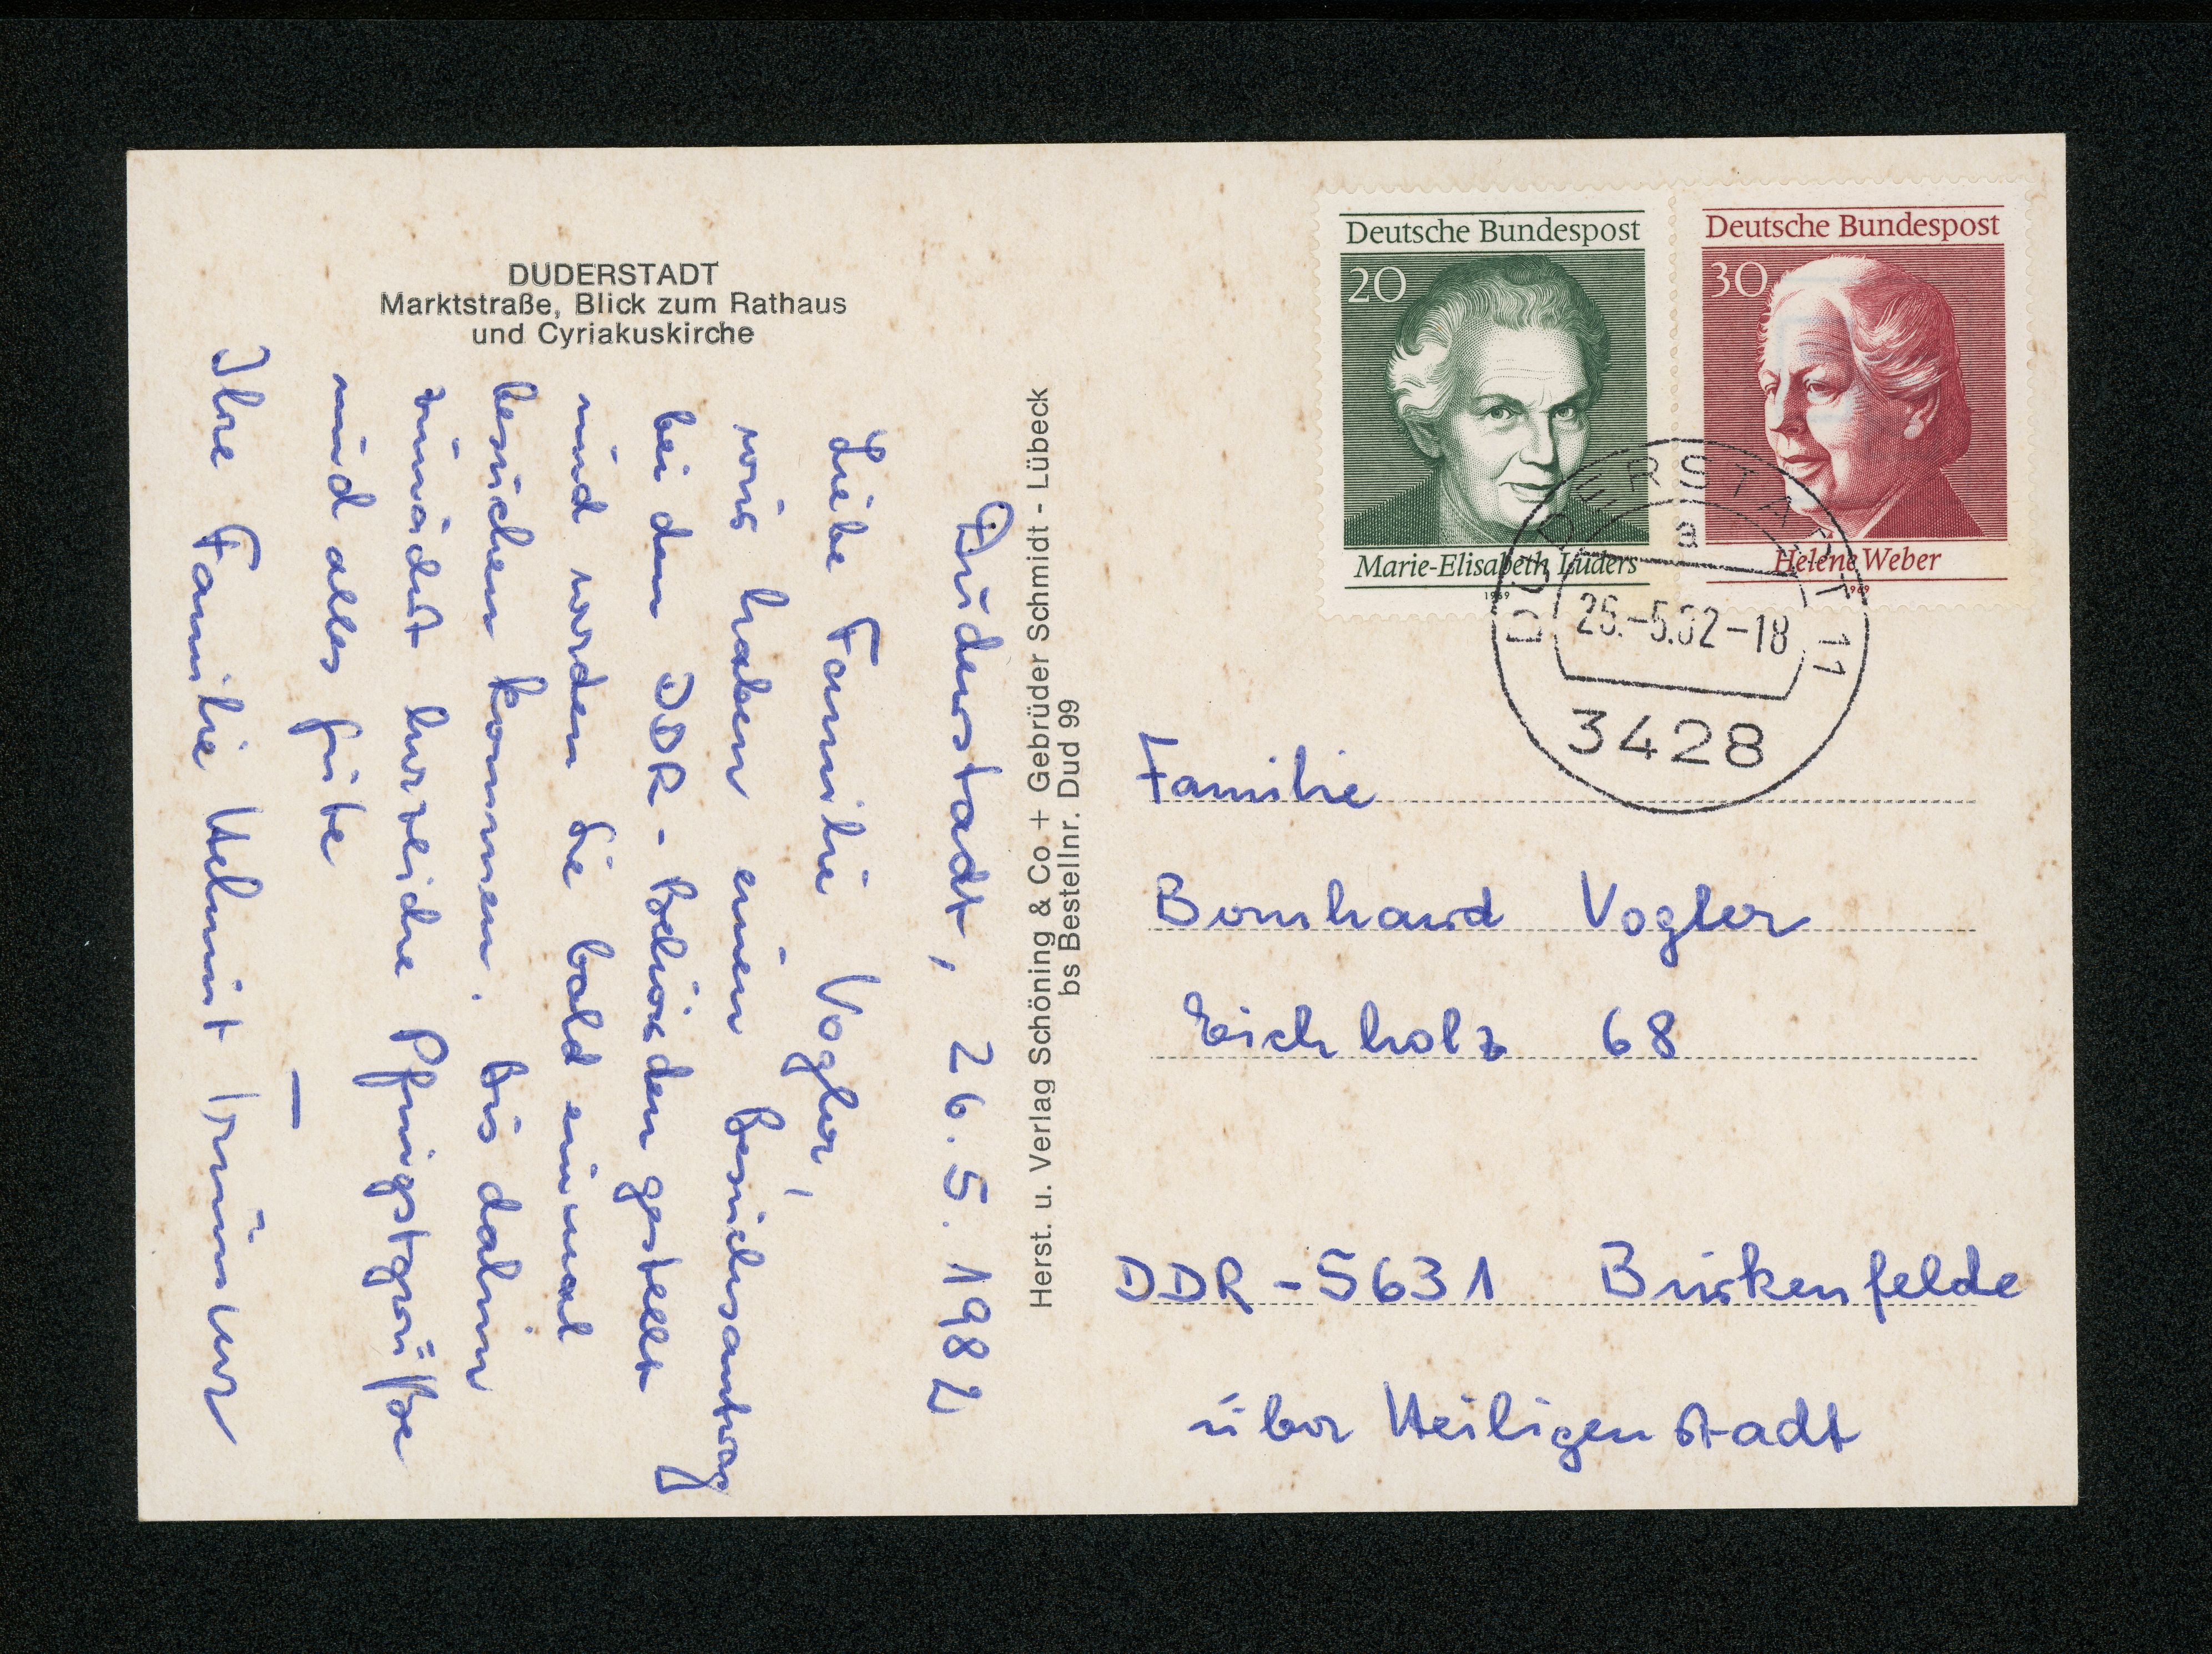 DUDERSTADT
Marktstraße, Blick zum Rathaus
und Cyriakuskirche
Duderstadt, 26.5.1982
Liebe Familie Vogler,
wir haben einen Besuchsantrag
bei den DDR-Behörden gestellt
und werden Sie bald einmal
besuchen kommen. Bis dahin
zunächst herzliche Pfingstgrüße
und alles Gute
Ihre Familie Helmut
Herst. u. Verlag Schöning & Co + Gebrüder Schmidt - Lübeck
bs Bestellnr. Dud 99
Deutsche Bundespost
20
Marie-Elisabeth Lüders
1969
Deutsche Bundespost
30
Helene Weber
1969
DUDERSTADT 11
a
26.-5.82-18
3428
Familie
Bernhard Vogler
Eichholz 68
DDR-5631 Birkenfelde
über Heiligenstadt